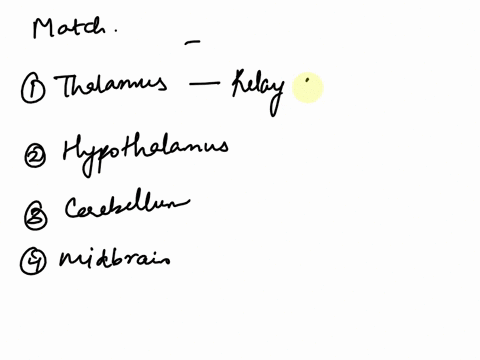 Match.
① Thalamus — Relay
② Hypothalamus
③ Cerebellum
④ midbrain